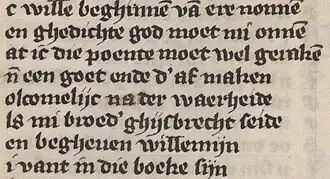 c wille beghinnē vā ere nonnē
en ghedichte god moet mi onnē
at ic die poente moet wel gerakē
ñ een goet ende d'af maken
olcomelijc na der waerheide
ls mi broed' ghijsbrecht seide
en begheuen willemijn
i vant in die boeke sijn